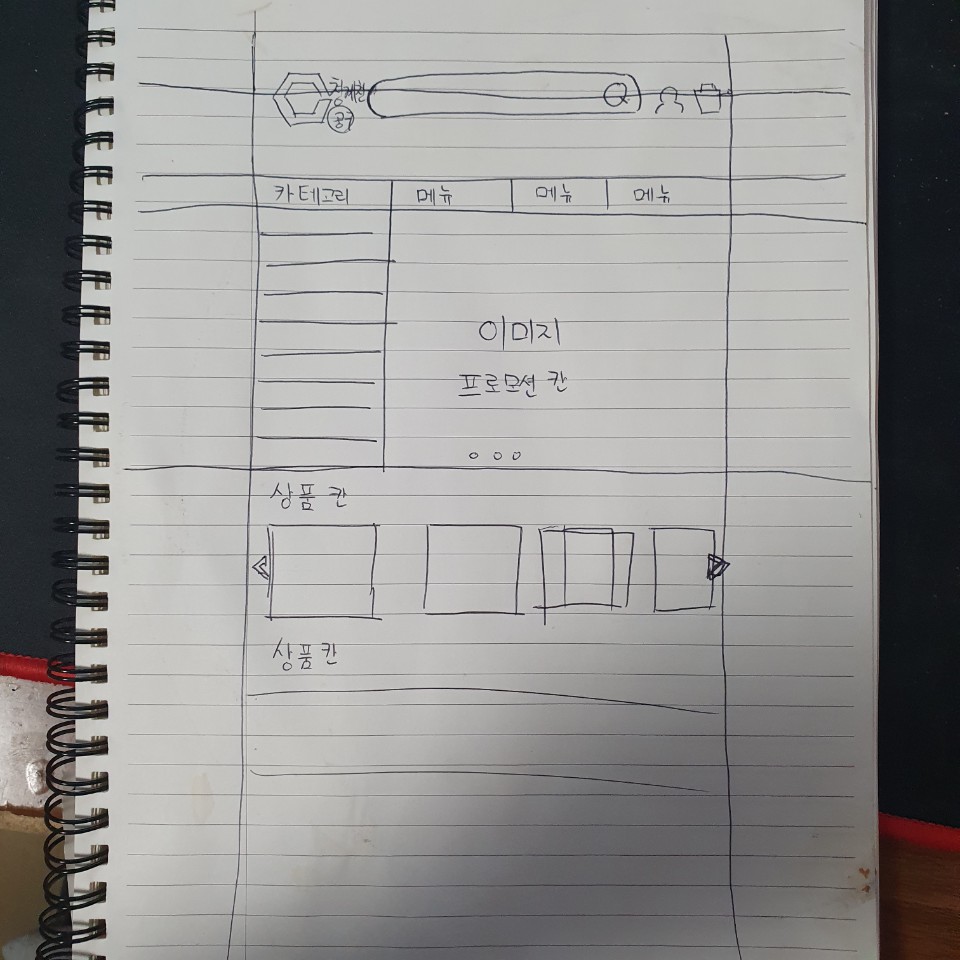 청계천
공구
카테고리 메뉴 메뉴 메뉴
이미지
프로모션 칸
상품 칸
상품칸